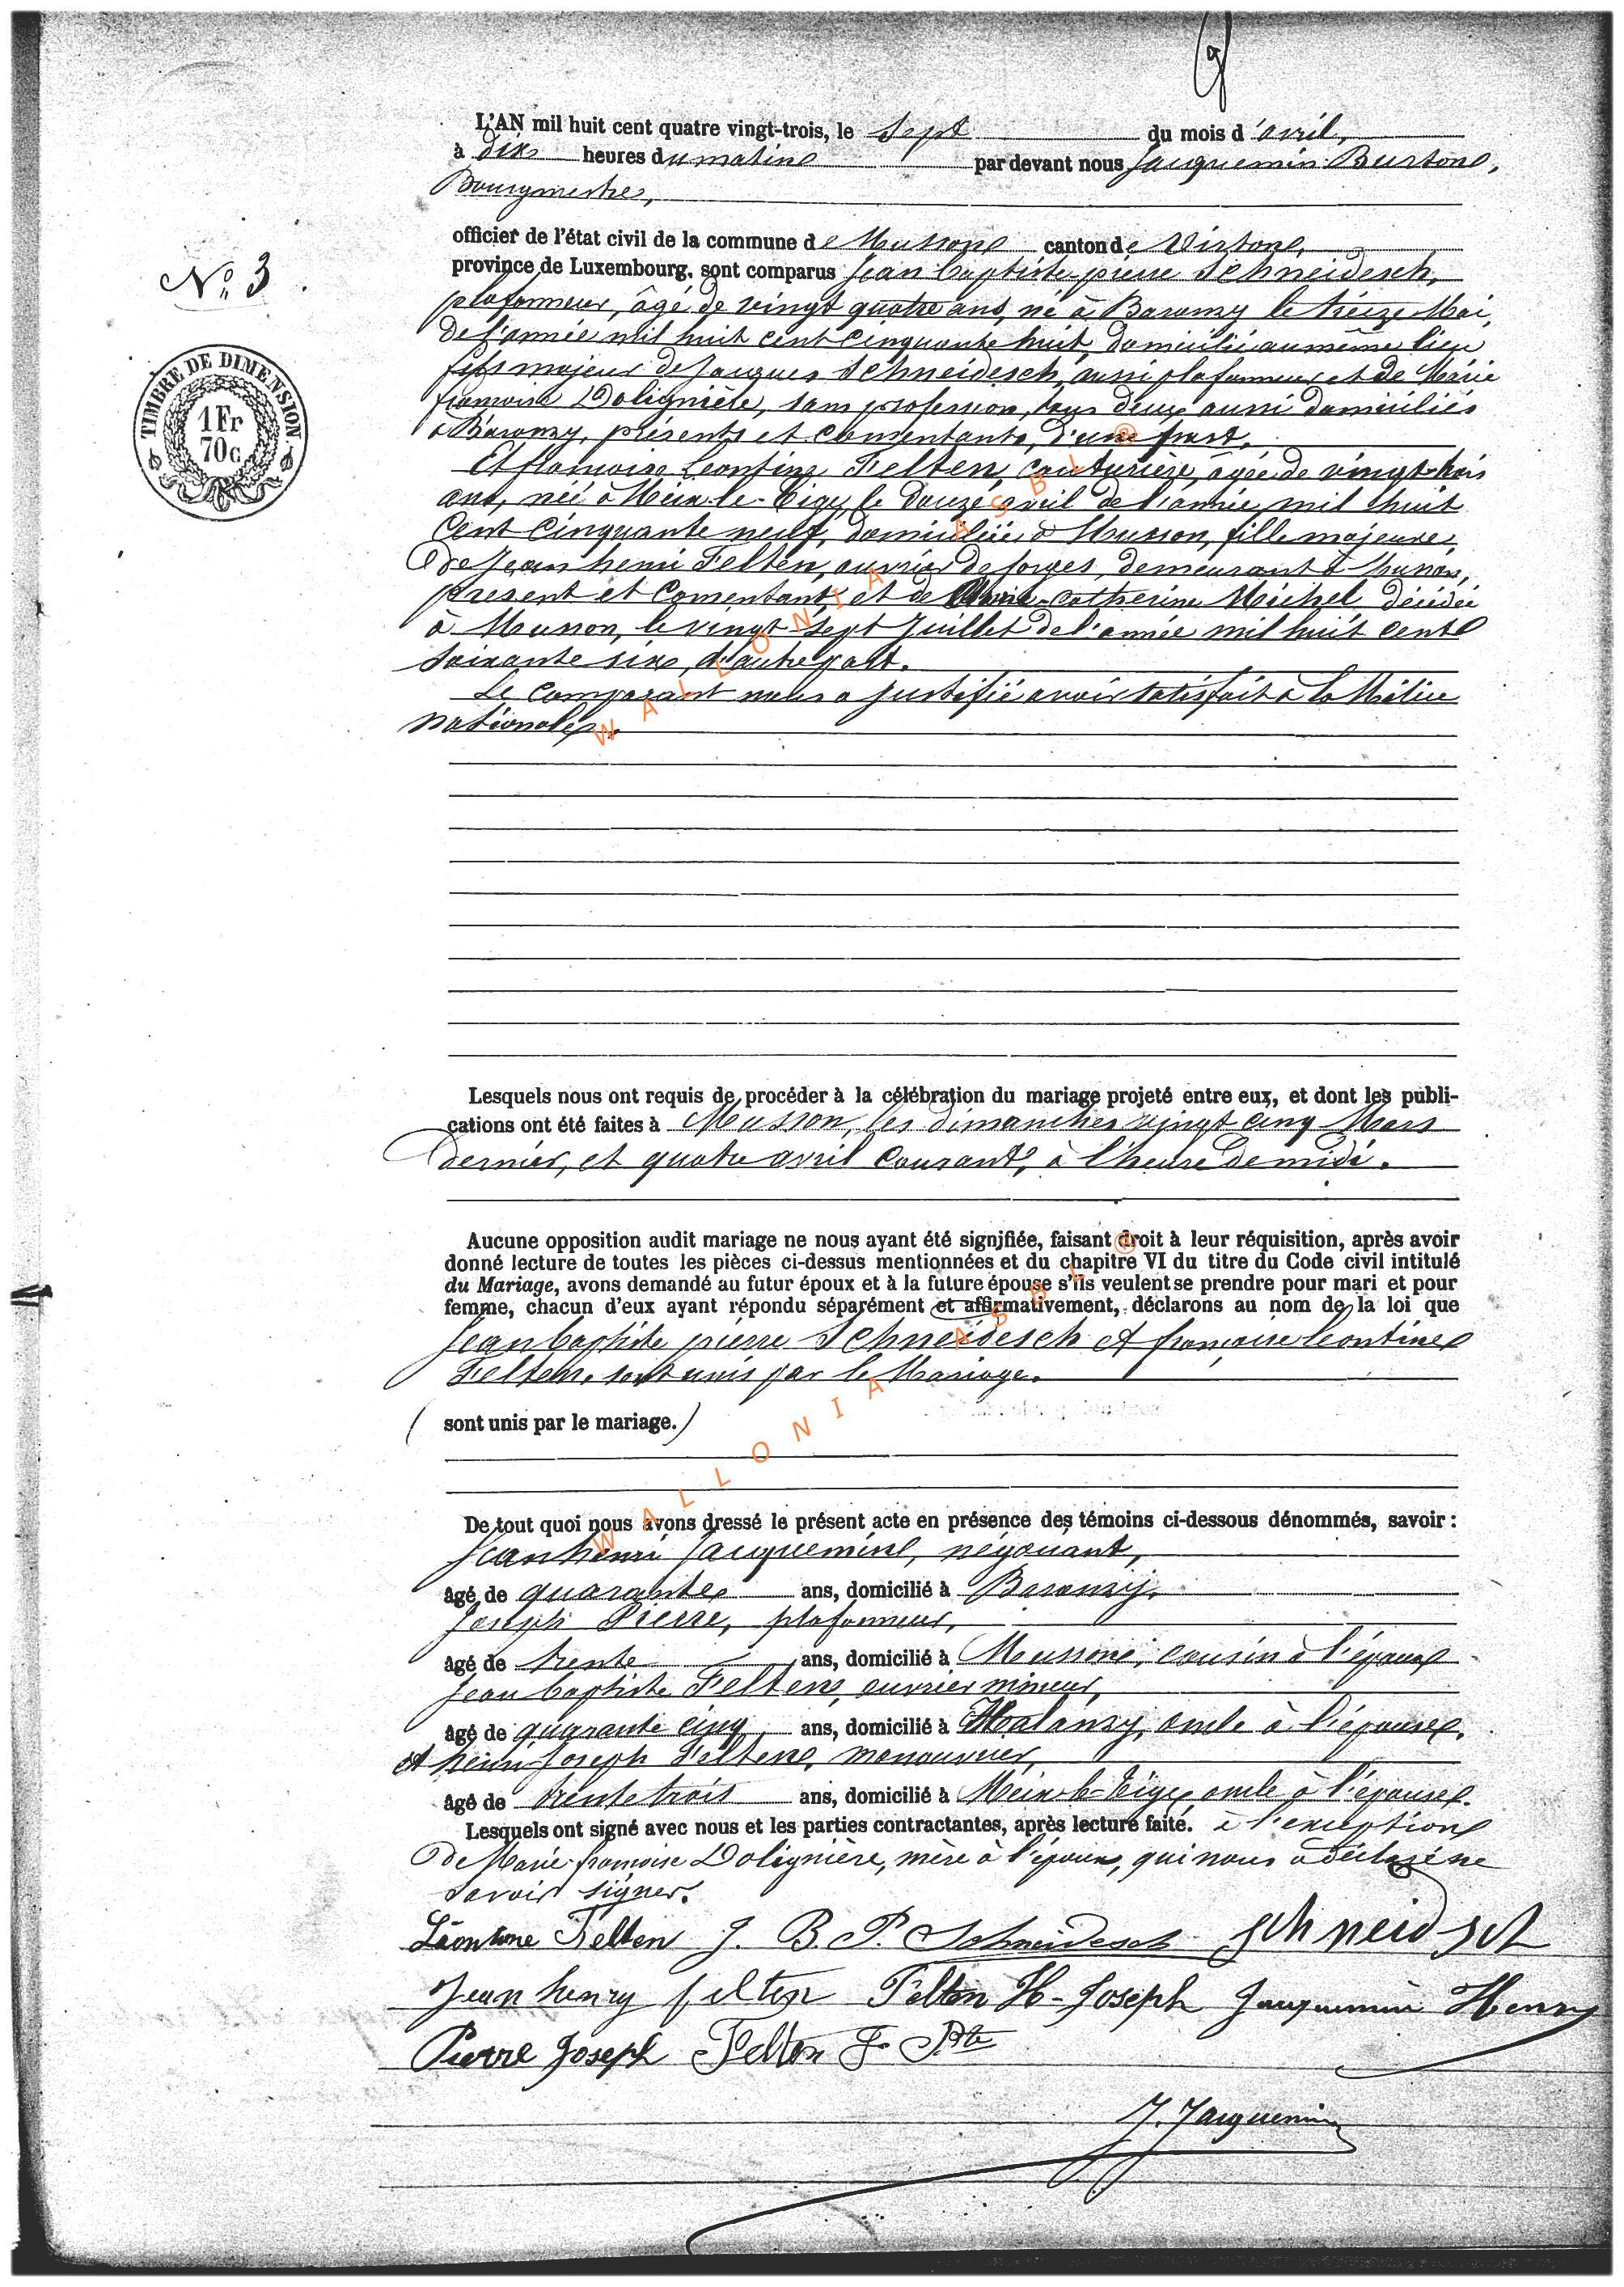 9
L'AN mil huit cent quatre vingt-trois, le sept du mois d'avril,
à dix heures du matin par devant nous Jacquemin Burton,
Bourgmestre,
officier de l'état civil de la commune de Musson canton de Virton,
province de Luxembourg, sont comparus Jean Baptiste pierre Schneidesch,
plafonneur, âgé de vingt quatre ans, né à Baranzy le treize Mai,
de l'année mil huit cent cinquante huit, domicilié au même lieu
fils majeur de Jacques Schneidesch, aussi plafonneur et de Marie
françoise Dolignière, sans profession, tous deux aussi domiciliés
à Baranzy, présents et consentants, d'une part.
Et françoise Léontine Felten, couturière, âgée de vingt-trois
ans, née à Meix-le-Tige, le douze avril de l'année mil huit
Cent Cinquante neuf, domiciliée à Musson, fille majeure,
De Jean henri Felten, ouvrier de forges, demeurant à Musson,
présent et Consentant, et de Marie-Catherine Michel décédée
à Musson, le vingt-sept Juillet de l'année mil huit cent
soixante six, d'autre part.
Le comparant nous a justifié avoir satisfait à la Milice
nationale.
No. 3
TIMBRE DE DIMENSION
1 Fr
70 c
Lesquels nous ont requis de procéder à la célébration du mariage projeté entre eux, et dont les publi-
cations ont été faites à Musson, les dimanches vingt cinq Mars
dernier, et quatre avril courant, à l'heure de midi.
Aucune opposition audit mariage ne nous ayant été signifiée, faisant droit à leur réquisition, après avoir
donné lecture de toutes les pièces ci-dessus mentionnées et du chapitre VI du titre du Code civil intitulé
du Mariage, avons demandé au futur époux et à la future épouse s'ils veulent se prendre pour mari et pour
femme, chacun d'eux ayant répondu séparément et affirmativement, déclarons au nom de la loi que
Jean baptiste pierre Schneidesch et françoise Léontine
Felten, sont unis par le Mariage.
(sont unis par le mariage.)
De tout quoi nous avons dressé le présent acte en présence des témoins ci-dessous dénommés, savoir :
Jean henri Jacquemin, négociant,
âgé de quarante ans, domicilié à Baranzy,
Joseph Pierre, plafonneur,
âgé de trente ans, domicilié à Musson, cousin à l'époux
Jean baptiste Felten, ouvrier mineur,
âgé de quarante cinq ans, domicilié à Halanzy, oncle à l'épouse,
et henri Joseph Felten, manouvrier,
âgé de trente trois ans, domicilié à Meix-le-Tige, oncle à l'épouse.
Lesquels ont signé avec nous et les parties contractantes, après lecture faite. à l'exception
De Marie françoise Dolignière, mère à l'époux, qui nous a déclaré ne
savoir signer.
Léontine Felten J. B. P. Schneidesch Schneidsch
Jean henry felten Felten H-Joseph Jacquemin Henry
Pierre Joseph Felten J. Bte
J. Jacquemin
WALLONIA ASBL ®
WALLONIA ASBL ®